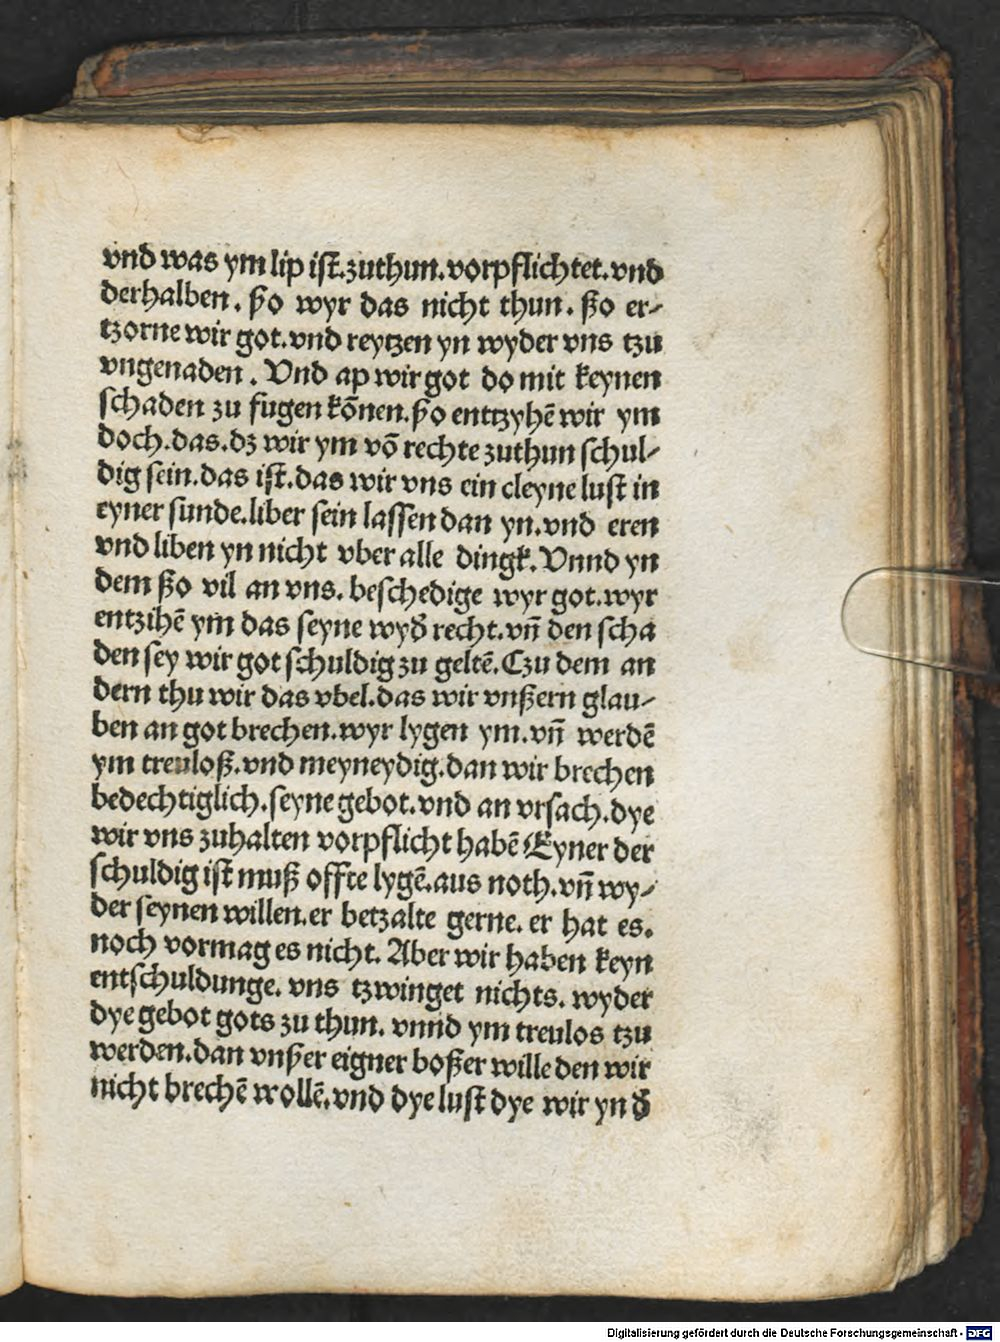 vnd was ym lip ist.zuthun.vorpflichtet.vnd
derhalben. ßo wyr das nicht thun. ßo er-
tzorne wir got.vnd reytzen yn wyder vns tzu
vngenaden. Vnd ap wir got do mit keynen
schaden zu fugen kōnen.ßo enttzyhē wir ym
doch.das.dz wir ym vō rechte zuthun schul-
dig sein.das ist.das wir vns ein cleyne lust in
eyner sunde.liber sein lassen dan yn.vnd eren
vnd liben yn nicht vber alle dingk. Vnnd yn
dem ßo vil an vns. beschedige wyr got.wyr
entzihē ym das seyne wyđ recht.vn̄ den scha
den sey wir got schuldig zu geltē. Czu dem an
dern thu wir das vbel.das wir vnßern glau-
ben an got brechen.wyr lygen ym.vn̄ werdē
ym treuloß.vnd meyneydig.dan wir brechen
bedechtiglich.seyne gebot.vnd an vrsach.dye
wir vns zuhalten vorpflicht habē Eyner der
schuldig ist muß offte lygē.aus noth.vn̄ wy-
der seynen willen.er betzalte gerne. er hat es.
noch vormag es nicht. Aber wir haben keyn
entschuldunge. vns tzwinget nichts. wyder
dye gebot gots zu thun. vnnd ym treulos tzu
werden.dan vnßer eigner boßer wille den wir
nicht brechē wollē.vnd dye lust dye wir yn đ
Digitalisierung gefördert durch die Deutsche Forschungsgemeinschaft - DFG